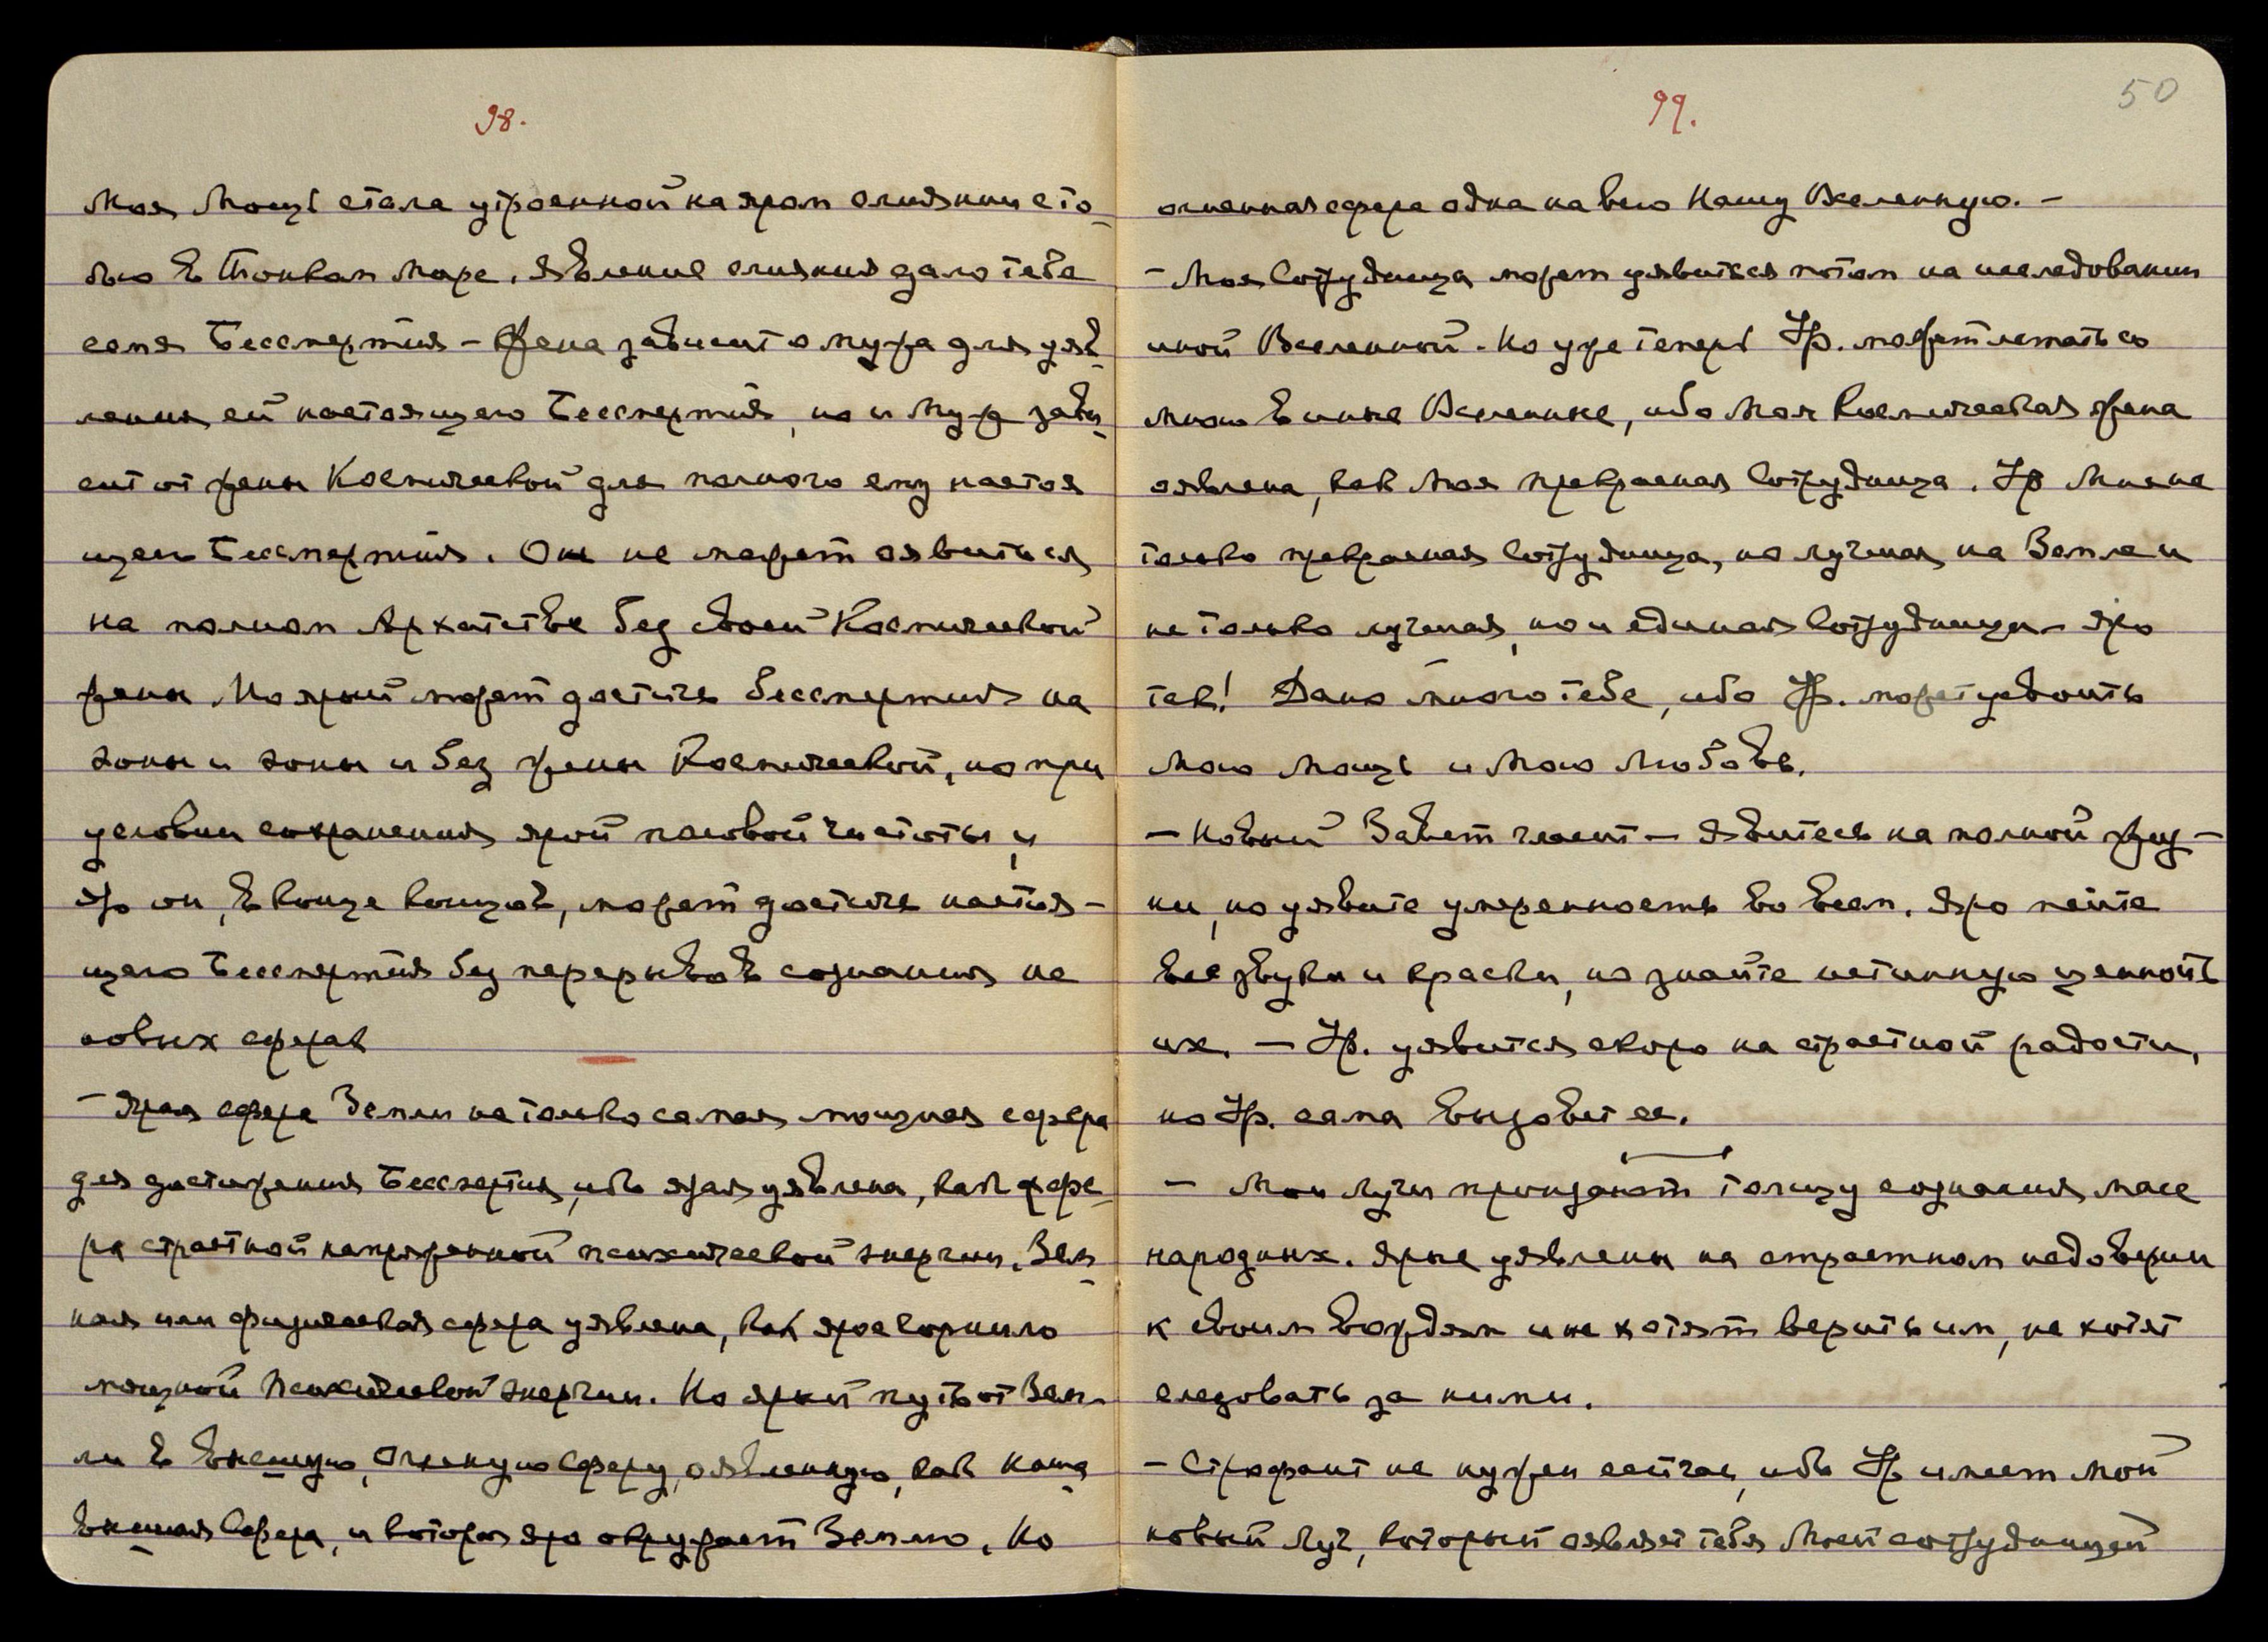 98.
Моя Мощь стала утроенной на яром слиянии с то-
бою в Тонком Мире. Явление слияния дало тебе
семя Бессмертия – Жена зависит о мужа для уяв-
ления ей настоящего Бессмертия, но и Муж зави-
сит от жены Космической для полного ему настоя
щего Бессмертия. Он не может оявиться
на полном Архатстве без своей Космической
жены. Но ярый может достичь бессмертия на
эоны и эоны и без жены Космической, но при
условии сохранения ярой половой чистоты и
яро он, в конце концов, может достичь настоя-
щего Бессмертия без перерывов сознания на
новых сферах
– Ярая сфера Земли не только самая мощная сфера
для достижения Бессмертия, ибо ярая уявлена, как сфе-
ра страстной напряженной психической энергии. Зем-
ная или физическая сфера уявлена, как яроегорнило
мощной Психической энергии. Но яркий путь от Зем-
ли в внешнюю, Огненную Сферу, оявленную, как Наша
внешняя Сфера, и которая яро окружает Землю. Но
99.
50
огненная сфера одна на всю Нашу Вселенную. –
– Моя Сотрудница может уявиться потом на исследовании
иной Вселенной. Но уже теперь Ур. может летать со
мною в иные Вселенные, ибо Моя Космическая жена
оявлена, как Моя прекрасная Сотрудница. Ур Мне не
только прекрасная Сотрудница, но лучшая на Земле и
не только лучшая, но и единая Сотрудница – яро
так! Дано много тебе, ибо Ур. может усвоить
Мою Мощь и Мою Любовь.
– Новый Завет гласит – Явитесь на полной жиз-
ни, но уявите умеренность во всем. Яро пейте
все звуки и краски, но знайте истинную ценность
их. – Ур. уявится скоро на страстной радости,
но Ур. сама вызовет ее.
– Мои лучи пронзают толщу сознания масс
народных. Ярые уявлены на страстном недоверии
к своим вождям и не хотят верить им, не хотят
следовать за ними.
– Строфант не нужен сейчас, ибо Ур имеет Мой
новый Луч, который оявляет тебя Моей сотрудницей